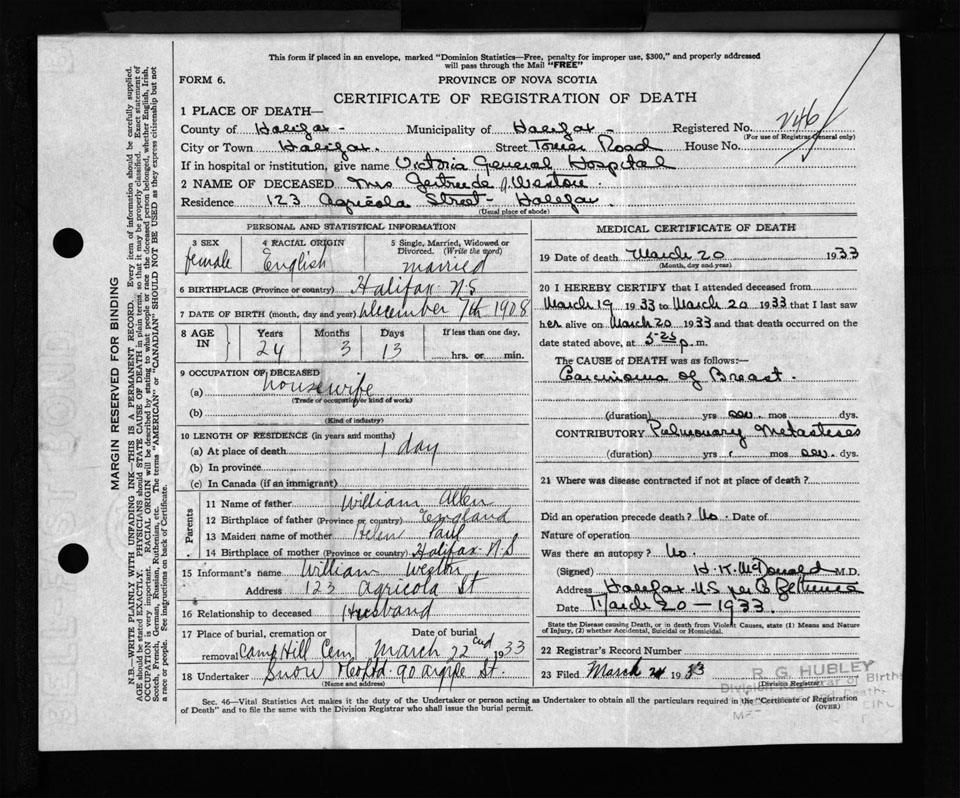 This form if placed in an envelope, marked "Dominion Statistics—Free, penalty for improper use, $300," and properly addressed
will pass through the Mail "FREE"
FORM 6.
PROVINCE OF NOVA SCOTIA
CERTIFICATE OF REGISTRATION OF DEATH
1 PLACE OF DEATH—
County of Halifax - Municipality of Halifax - Registered No. 246
(For use of Registrar General only)
City or Town Halifax. Street Tower Road House No.
If in hospital or institution, give name Victoria General Hospital
2 NAME OF DECEASED Mrs Gertrude J. Weston.
Residence 123 Agricola Street - Halifax.
(Usual place of abode)
PERSONAL AND STATISTICAL INFORMATION
3 SEX female
4 RACIAL ORIGIN English
5 Single, Married, Widowed or Divorced. (Write the word) married
6 BIRTHPLACE (Province or country) Halifax N.S
7 DATE OF BIRTH (month, day and year) December 7th 1908
8 AGE IN Years Months Days If less than one day,
24 3 13 hrs. or min.
9 OCCUPATION OF DECEASED
(a) housewife
(Trade or occupation or kind of work)
(b)
(Kind of industry)
10 LENGTH OF RESIDENCE (in years and months)
(a) At place of death 1 day
(b) In province
(c) In Canada (if an immigrant)
Parents
11 Name of father William Allen
12 Birthplace of father (Province or country) England
13 Maiden name of mother Helen Paul
14 Birthplace of mother (Province or country) Halifax N.S
15 Informant's name William Weston
Address 123 Agricola St
16 Relationship to deceased Husband
17 Place of burial, cremation or removal Camp Hill Cem
Date of burial March 22nd 1933
18 Undertaker Snow & Co Ltd. 90 Argyle St.
(Name and address)
MEDICAL CERTIFICATE OF DEATH
19 Date of death March 20 1933
(Month, day and year)
20 I HEREBY CERTIFY that I attended deceased from
March 19 1933 to March 20 1933 that I last saw
her alive on March 20 1933 and that death occurred on the
date stated above, at 5-25 p.m.
The CAUSE of DEATH was as follows:—
Carcinoma of Breast.
(duration) yrs mos dys.
CONTRIBUTORY Pulmonary Metasteses
(duration) yrs mos dys.
21 Where was disease contracted if not at place of death?
Did an operation precede death? No. Date of
Nature of operation
Was there an autopsy? No.
(Signed) H. K. McDonald M.D.
Address Halifax N.S. per
Date March 20 — 1933.
State the Disease causing Death, or in death from Violent Causes, state (1) Means and
Nature of Injury, (2) whether Accidental, Suicidal or Homicidal.
22 Registrar's Record Number
23 Filed March 1933
(Division Registrar)
R. G. HUBLEY
Division Registrar of Births
Sec. 46—Vital Statistics Act makes it the duty of the Undertaker or person acting as Undertaker to obtain all the particulars required in the "Certificate of Registration
of Death" and to file the same with the Division Registrar who shall issue the burial permit.
(OVER)
MARGIN RESERVED FOR BINDING
N.B. WRITE PLAINLY WITH UNFADING INK—THIS IS A PERMANENT RECORD. Every item of information should be carefully supplied.
AGE should be stated EXACTLY. PHYSICIANS should STATE CAUSE OF DEATH in plain terms, so that it may be properly classified. Exact statement of
OCCUPATION is very important. RACIAL ORIGIN will be described by stating to what people or race the deceased person belonged, whether English, Irish,
Scotch, French, German, Russian, Ruthenian, etc. The terms "AMERICAN" or "CANADIAN" SHOULD NOT BE USED as they express citizenship but not
a race or people. See instructions on back of Certificate.